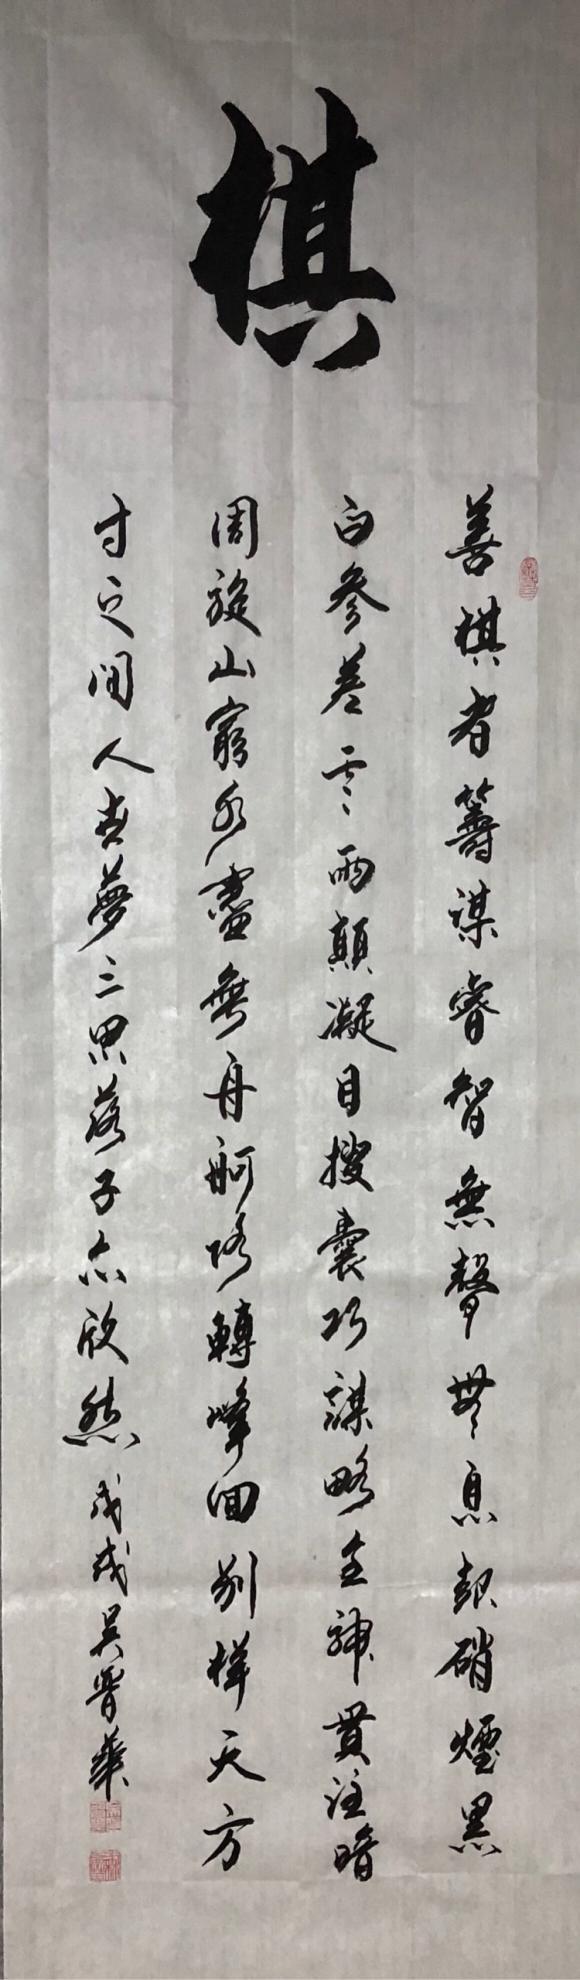 棋
善棋者籌謀睿智無聲無息起硝煙黑
白參差雲雨顛凝目搜囊巧謀略全神貫注暗
周旋山窮水盡無舟舸路轉峰回別樣天方
寸之間人玄夢三思落子亦欣然戊戌吳晉華